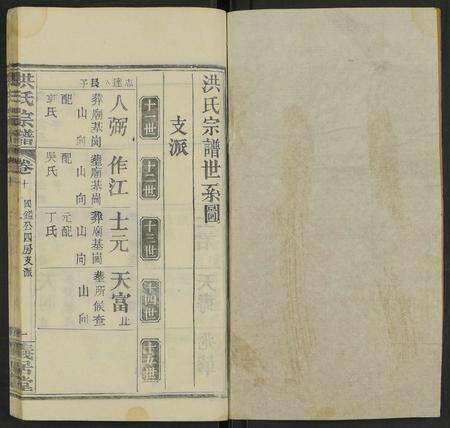 洪氏宗譜世系圖
支派
十一世
十二世
十三世
十四世
十五世
人弼
長子
葬廟基崗
山向
配
氏
作江
葬廟基崗
山向
配
吳氏
士元
葬廟基崗
山向
元配
丁氏
天富
止
墓所候查
山向
洪氏宗譜
卷十
國鑑公四房支派
一
義居堂